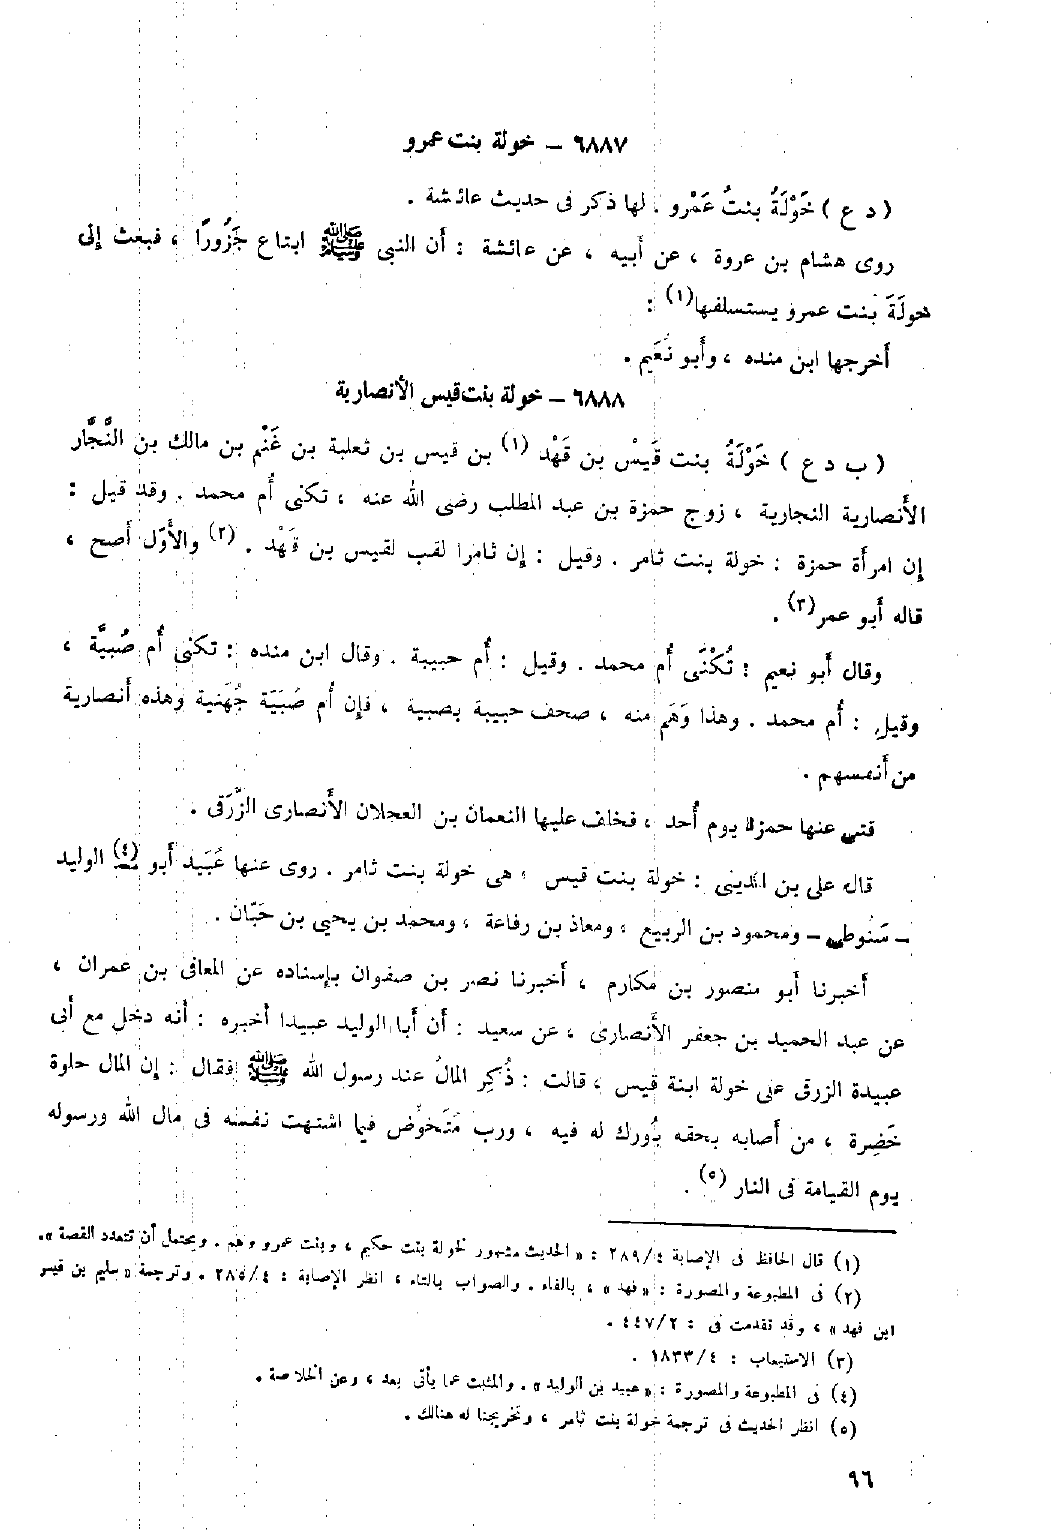 ٦٨٨٧ – خولة بنت عمرو
( د ع ) خَوْلَةُ بنتُ عَمْرو . لها ذكر فى حديث عائشة .
روى هشام بن عروة ، عن أبيه ، عن عائشة : أن النبى ﷺ ابتاع جَزُورًا ، فبعث إلى
خولَةَ بنت عمرو يستسلفها(١) :
أخرجها ابن منده ، وأبو نُعَيم .
٦٨٨٨ – خولة بنت قيس الأنصارية
( ب د ع ) خَوْلَةُ بنت قَيْس بن قَهْد (١) بن قيس بن ثعلبة بن غَنْم بن مالك بن النَّجَّار
الأنصارية النجارية ، زوج حمزة بن عبد المطلب رضى الله عنه ، تكنى أُم محمد . وقد قيل :
إن امرأة حمزة : خولة بنت ثامر . وقيل : إن ثامرا لقب لقيس بن قَهْد . (٢) والأَوّل أصح ،
قاله أَبو عمر(٣) .
وقال أَبو نعيم : تُكْنَى أُم محمد . وقيل : أُم حبيبة . وقال ابن منده : تكنى أُم صُبيَّة ،
وقيل : أُم محمد . وهذا وَهَم منه ، صحف حبيبة بصبية ، فإن أُم صُبَيَة جُهَنية وهذه أنصارية
من أنفسهم .
قتل عنها حمزة يوم أُحد ، فخلف عليها النعمان بن العجلان الأنصارى الزُّرَقى .
قال على بن المدينى : خولة بنت قيس ، هى خولة بنت ثامر . روى عنها عُبَيد أبو (٤) الوليد
– سَنُوطى – ومحمود بن الربيع ، ومعاذ بن رفاعة ، ومحمد بن يحيى بن حَبّان .
أخبرنا أبو منصور بن مكارم ، أخبرنا نصر بن صفوان بإسناده عن المعافى بن عمران ،
عن عبد الحميد بن جعفر الأنصارى ، عن سعيد : أن أبا الوليد عبيدا أخبره : أنه دخل مع أبى
عبيدة الزرقى على خولة ابنة قيس ، قالت : ذُكِر المالُ عند رسول الله ﷺ فقال : إن المال حلوة
خَضِرة ، من أصابه بحقه بُورك له فيه ، ورب مُتَخوّض فيما اشتهت نفسه فى مال الله ورسوله
يوم القيامة فى النار (٥) .
(١) قال الحافظ فى الإصابة ٢٨٩/٤ : « الحديث مشهور لخولة بنت حكيم ، وبنت عمرو وهم . ويحتمل أن تتعدد القصة ».
(٢) فى المطبوعة والمصورة : « فهد » ، بالفاء . والصواب بالتاء ، انظر الإصابة : ٢٨٥/٤ . وترجمة « سليم بن قيس
ابن فهد » ، وقد تقدمت فى : ٤٤٧/٢ .
(٣) الاستيعاب : ١٨٣٣/٤ .
(٤) فى المطبوعة والمصورة : « عبيد بن الوليد » . والمثبت عما يأتى بعد ، وعن الخلاصة .
(٥) انظر الحديث فى ترجمة خولة بنت ثامر ، وتخريجنا له هنالك .
٩٦